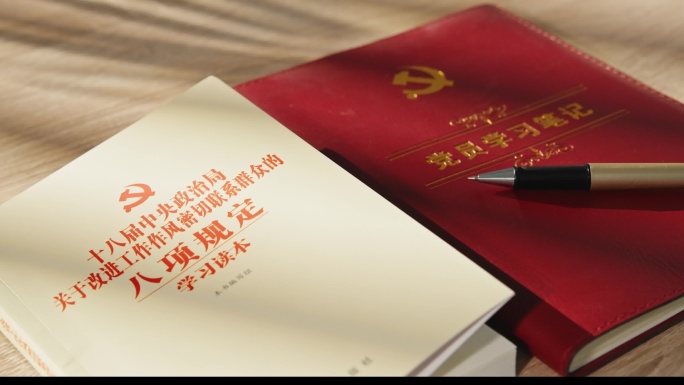 十八届中央政治局
关于改进工作作风密切联系群众的
八项规定
学习读本
本书编写组
党员学习笔记